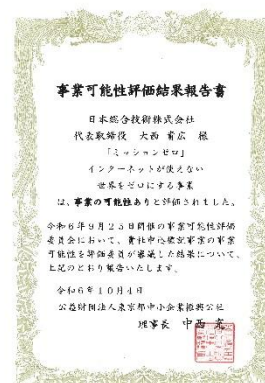 事業可能性評価結果報告書
日本総合技術株式会社
代表取締役 大西 甫広 様
「ミッションゼロ」
インターネットが使えない
世界をゼロにする事業
は、事業の可能性ありと評価されました。
令和6年9月25日開催の事業可能性評価
委員会において、貴社申込標記事業の事業
可能性を評価委員が審議した結果について、
上記のとおり報告いたします。
令和6年10月4日
公益財団法人東京都中小企業振興公社
理事長 中西 充